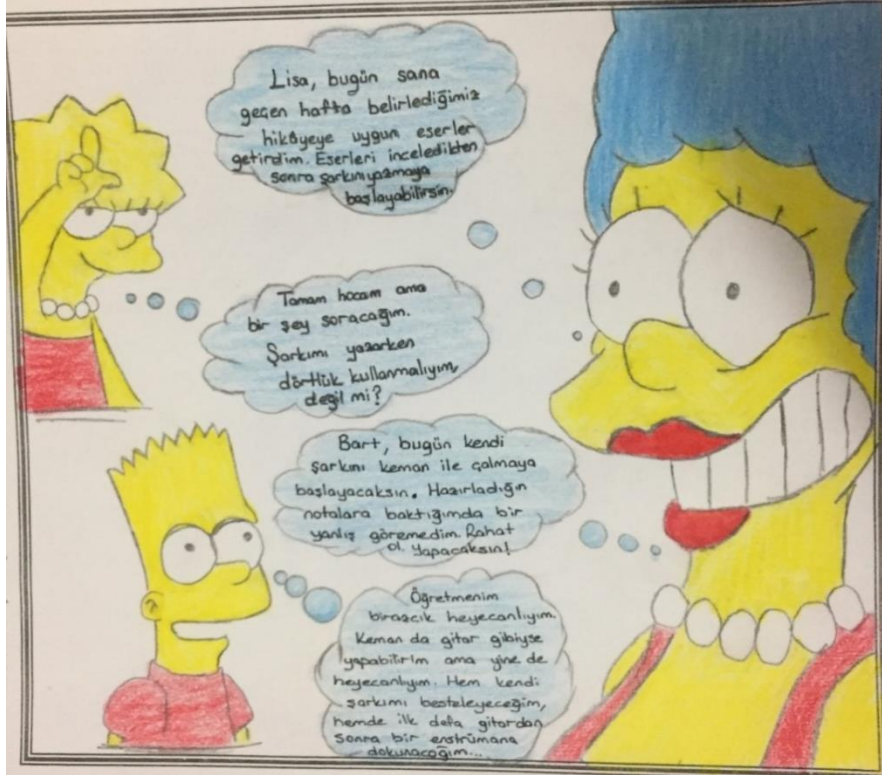 Lisa, bugün sana
geçen hafta belirlediğimiz
hikâyeye uygun eserler
getirdim. Eserleri inceledikten
sonra şarkını yazmaya
başlayabilirsin.
Tamam hocam ama
bir şey soracağım.
Şarkımı yazarken
dörtlük kullanmalıyım,
değil mi?
Bart, bugün kendi
şarkını keman ile çalmaya
başlayacaksın. Hazırladığın
notalara baktığımda bir
yanlış göremedim. Rahat
ol. Yapacaksın!
Öğretmenim
birazcık heyecanlıyım.
Keman da gitar gibiyse
yapabilirim ama yine de
heyecanlıyım. Hem kendi
şarkımı besteleyeceğim,
hemde ilk defa gitardan
sonra bir enstrümana
dokunacağım...